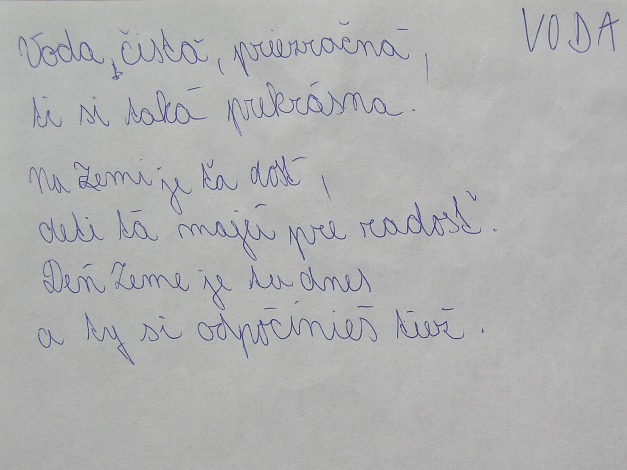 VODA
Voda, čistá, priezračná,
ti si taká prekrásna.
Na Zemi je ťa dosť,
deti ťa majú pre radosť.
Deň Zeme je tu dnes
a ty si odpočínieš tiež.